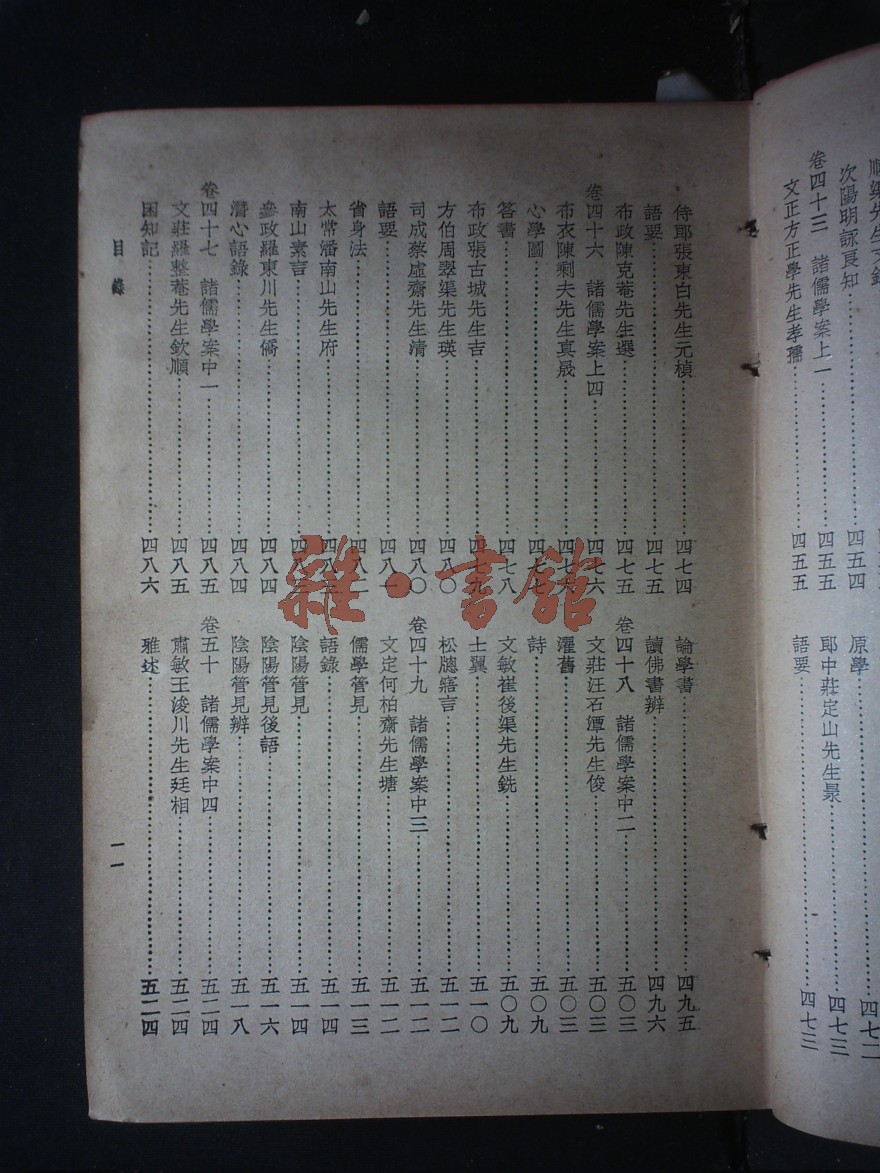 次陽明詠良知……四五四
卷四十三　諸儒學案上一……四五五
文正方正學先生孝孺……四五五
原學……四七二
郎中莊定山先生㫤……四七三
語要……四七三
侍郎張東白先生元楨……四七四
語要……四七五
布政陳克菴先生選……四七五
卷四十六　諸儒學案上四……四七六
布衣陳剩夫先生真晟……四七六
心學圖……四七七
答書……四七八
布政張古城先生吉……四七九
方伯周翠渠先生瑛……四八〇
司成蔡虛齋先生清……四八〇
語要……四八一
省身法……四八二
太常潘南山先生府……四八三
南山素言……四八三
參政羅東川先生僑……四八四
潛心語錄……四八四
卷四十七　諸儒學案中一……四八五
文莊羅整菴先生欽順……四八五
困知記……四八六
論學書……四九五
讀佛書辨……四九六
卷四十八　諸儒學案中二……五〇三
文莊汪石潭先生俊……五〇三
濯舊……五〇三
詩……五〇九
文敏崔後渠先生銑……五〇九
士翼……五一〇
松牕寤言……五一二
卷四十九　諸儒學案中三……五一二
文定何柏齋先生瑭……五一二
儒學管見……五一三
語錄……五一四
陰陽管見……五一四
陰陽管見後語……五一六
陰陽管見辨……五一八
卷五十　諸儒學案中四……五二四
肅敏王浚川先生廷相……五二四
雅述……五二四
目錄
一一
雜·書館